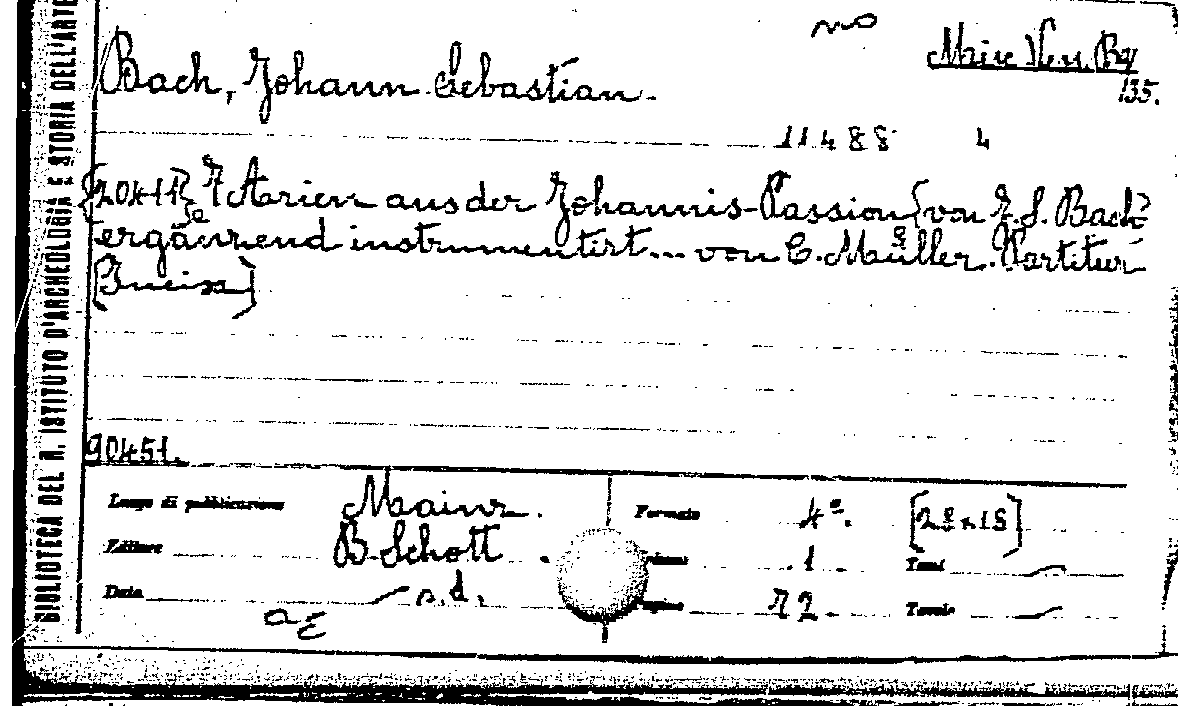 BIBLIOTECA DEL R. ISTITUTO D'ARCHEOLOGIA E STORIA DELL'ARTE
Bach, Johann Sebastian.
135.
11488 4
7 Arien aus der Johannis-Passion von J. S. Bach
ergänzend instrumentirt... von C. Müller. Partitur
90451.
Luogo di pubblicazione Mainz. Formato 4º.
Editore B. Schott 1 Tomi
Data s.d. Pagine 72. Tavole